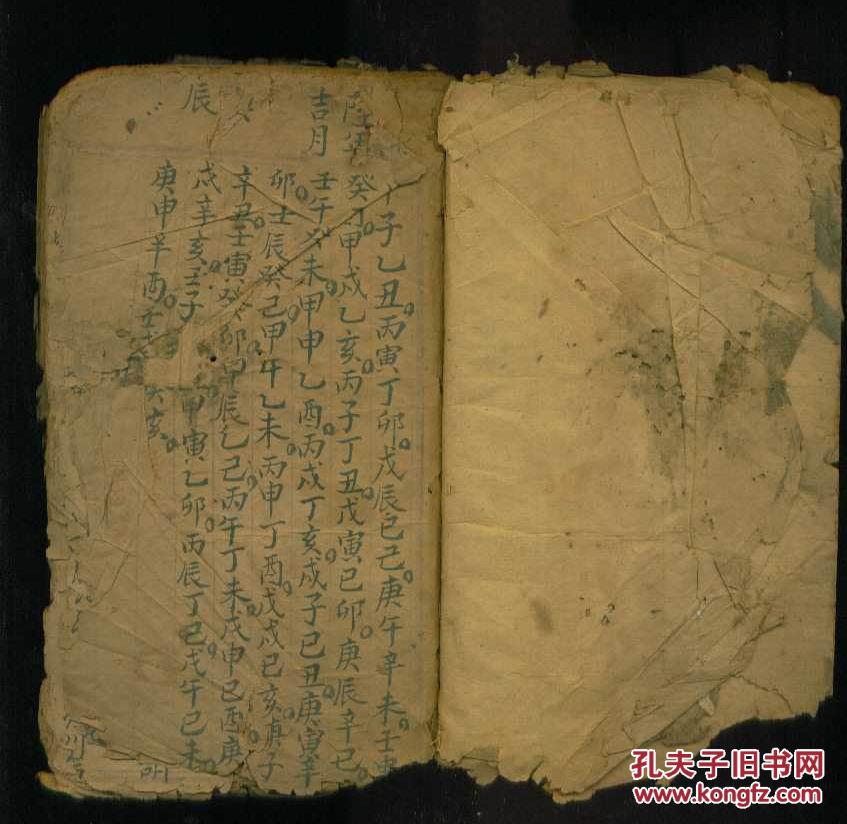 子乙丑。丙寅丁卯。戊辰已己。庚午辛未。壬申
癸丁。甲戌乙亥。丙子丁丑。戊寅已卯。庚辰辛已。
吉月
壬午癸未。甲申乙酉。丙戌丁亥。戊子已丑。庚寅辛
卯。壬辰癸己。甲午乙未。丙申丁酉。戊戌已亥。庚子
辛丑。壬寅癸卯。甲辰乙己。丙午丁未。戊申已酉。庚
辰
戌辛亥。壬子 甲寅乙卯。丙辰丁已。戊午已未。
庚申辛酉。壬戌 亥。
孔夫子旧书网
www.kongfz.com